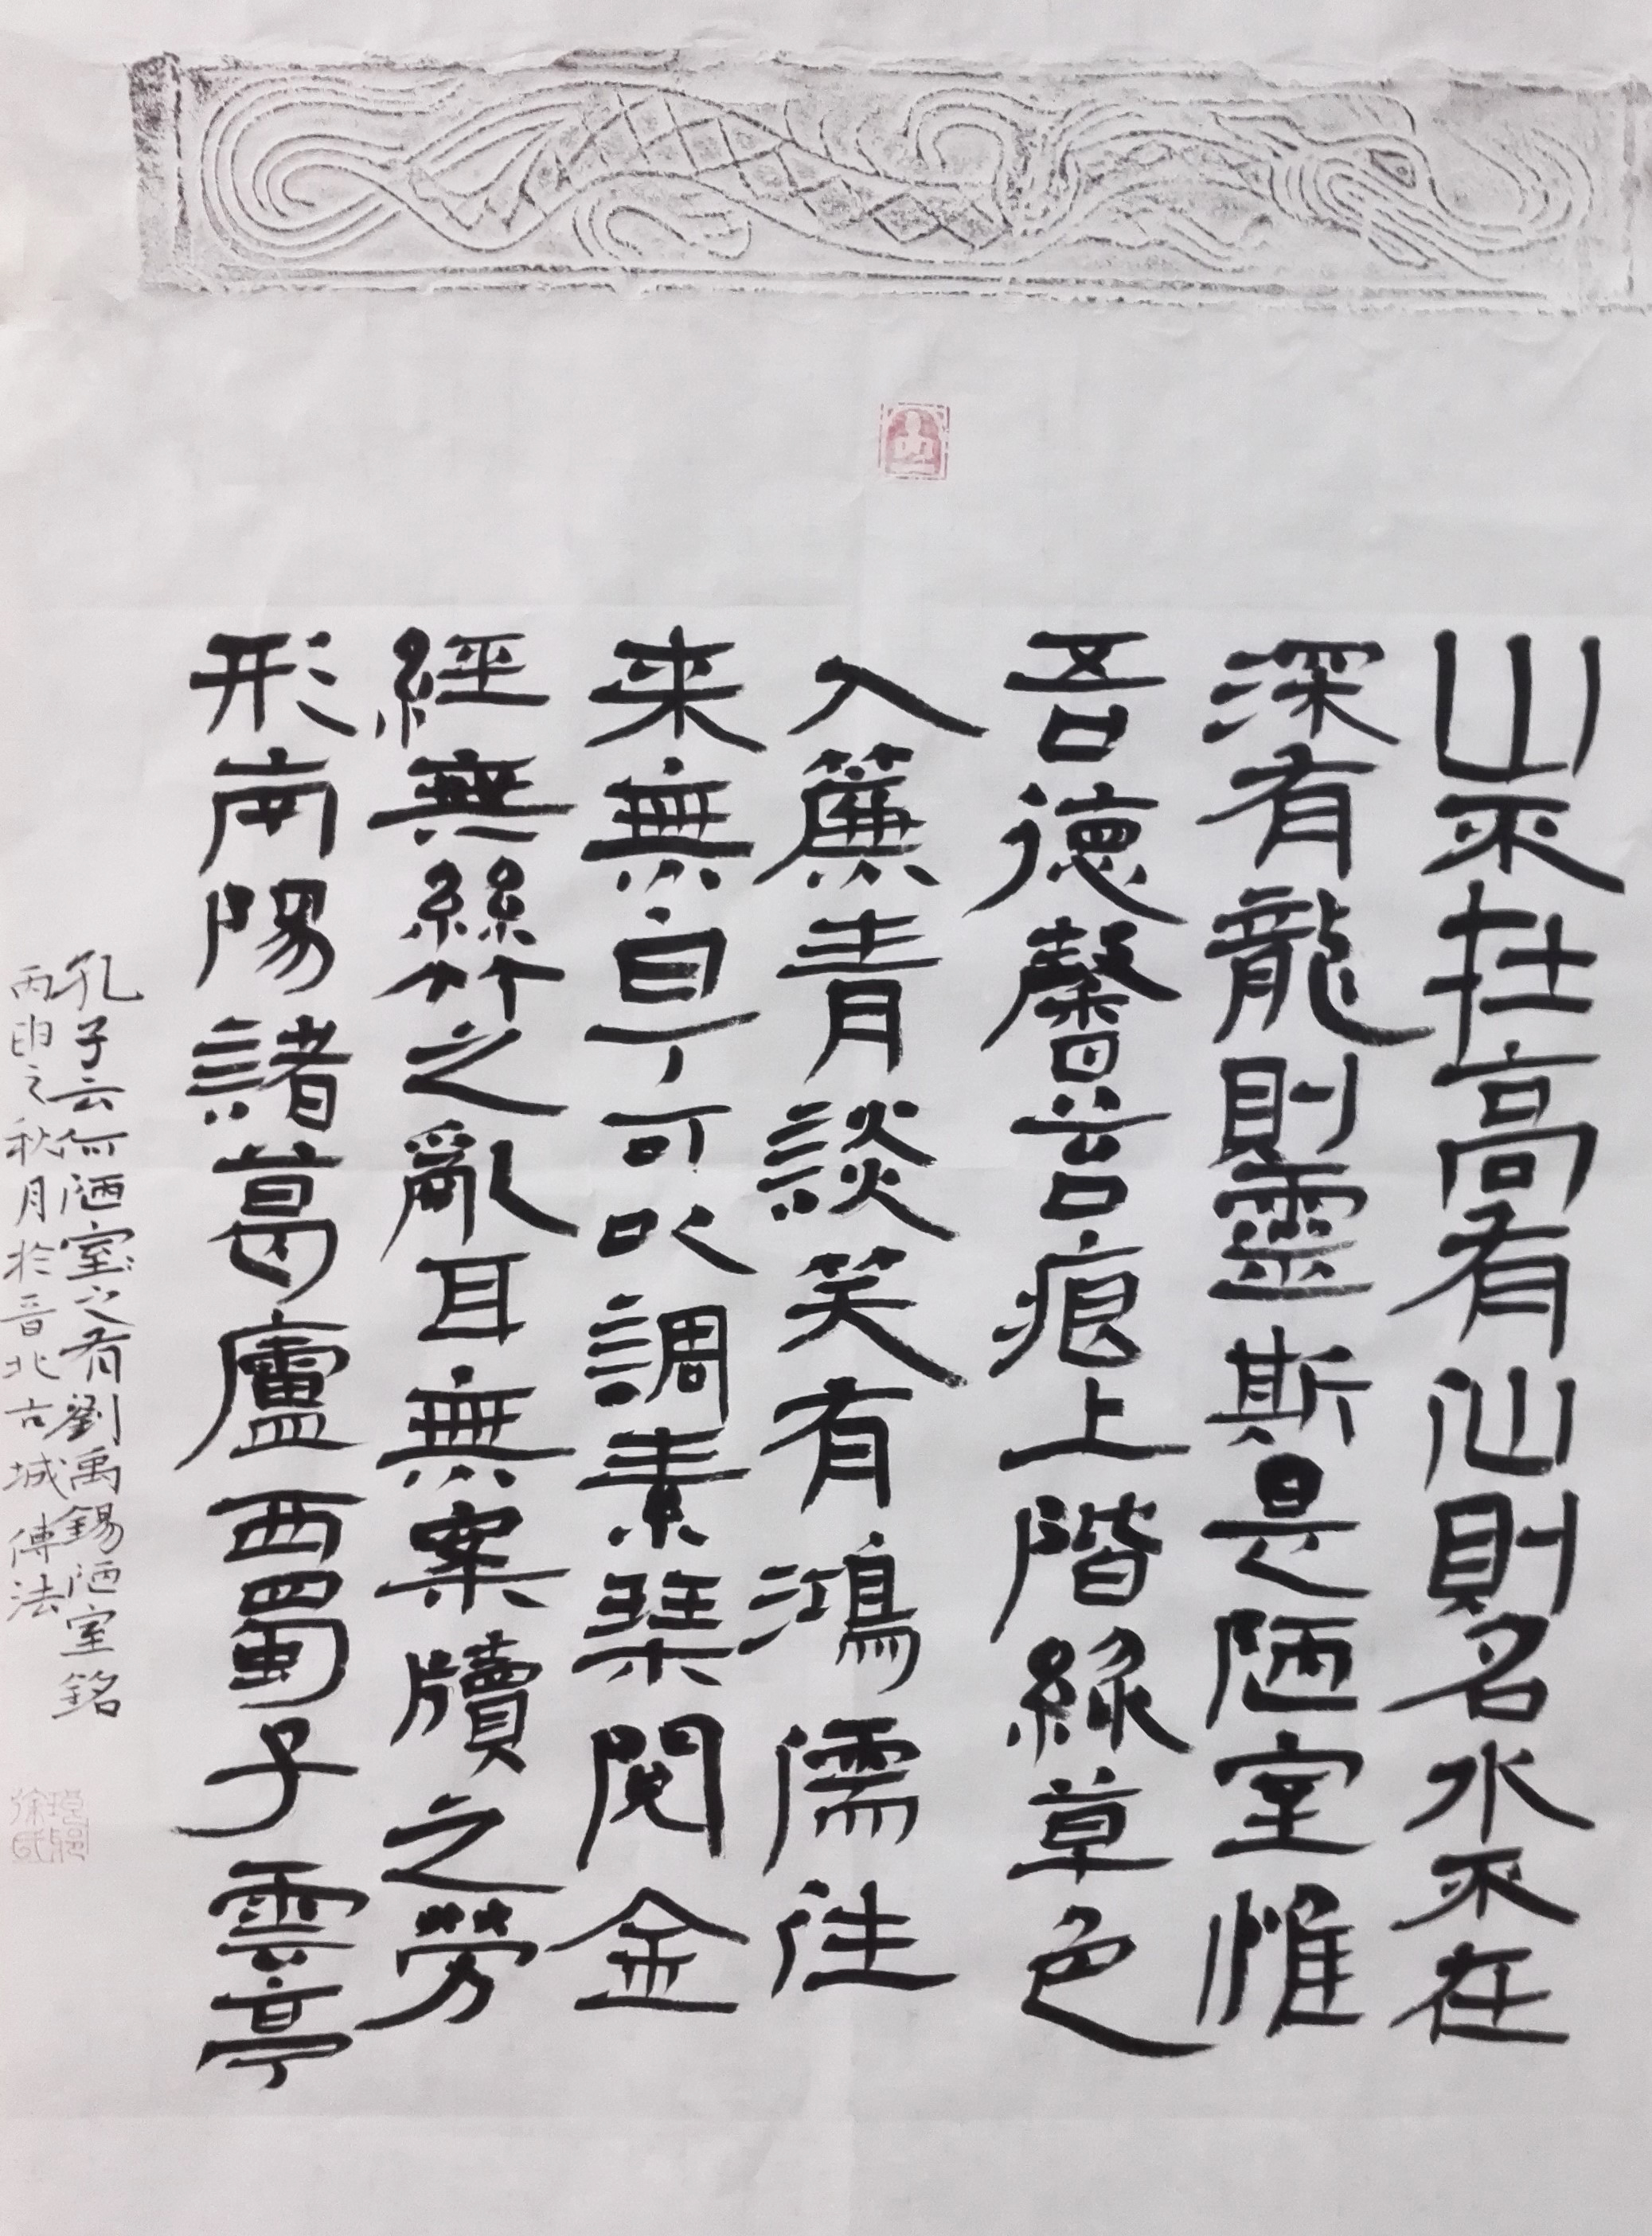 山不在高有仙則名水不在
深有龍則靈斯是陋室惟
吾德馨苔痕上階綠草色
入簾青談笑有鴻儒往
来無白丁可以調素琴閱金
經無絲竹之亂耳無案牘之勞
形南陽諸葛廬西蜀子雲亭
孔子云何陋室之有劉禹錫陋室銘
丙申之秋月於晉北古城傳法